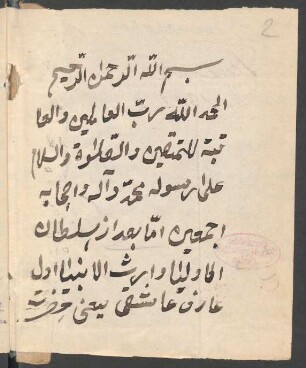 2
بسم الله الرحمن الرحيم
الحمد الله رب العالمين والعا
قبة للمتقين والصلوة والسلام
على رسوله محمد وآله واصحابه
اجمعين اما بعد از سلطان
الاوليا و ارث الانبيا اول
عارف عاشقى يعنى حضرت